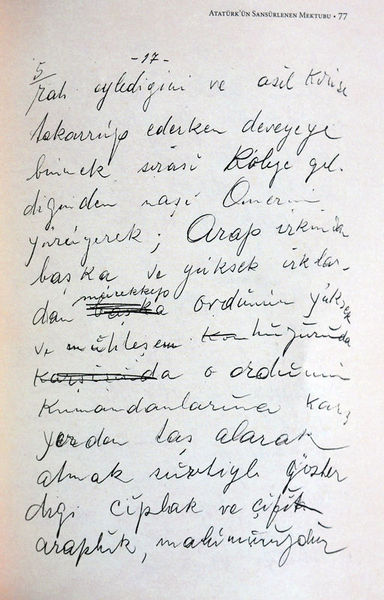 ATATÜRK'ÜN SANSÜRLENEN MEKTUBU • 77
5
-17-
rak eylediğini ve asıl Kudüse
takarrüp ederken deveyeye
binmek sırası Köleye gel-
diğinden naşi Ömerin
yürüyerek; Arap ırkından
başka ve yüksek ırklar-
dan mürekkep ordunun yüksek
ve muhteşem huzurunda
o ordunun
Kumandanlarına karşı
yerden taş alarak
atmak suretiyle göster
diği çıplak ve çiğ
araplık, malûmunuzdur